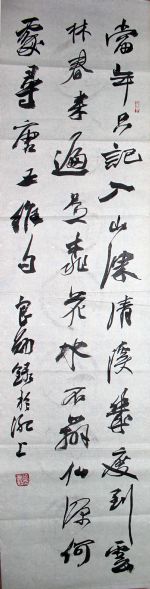 當年只記入山深清溪幾度到雲
林春來遍是桃花水不辨仙源何
處尋唐王維句
錄於上